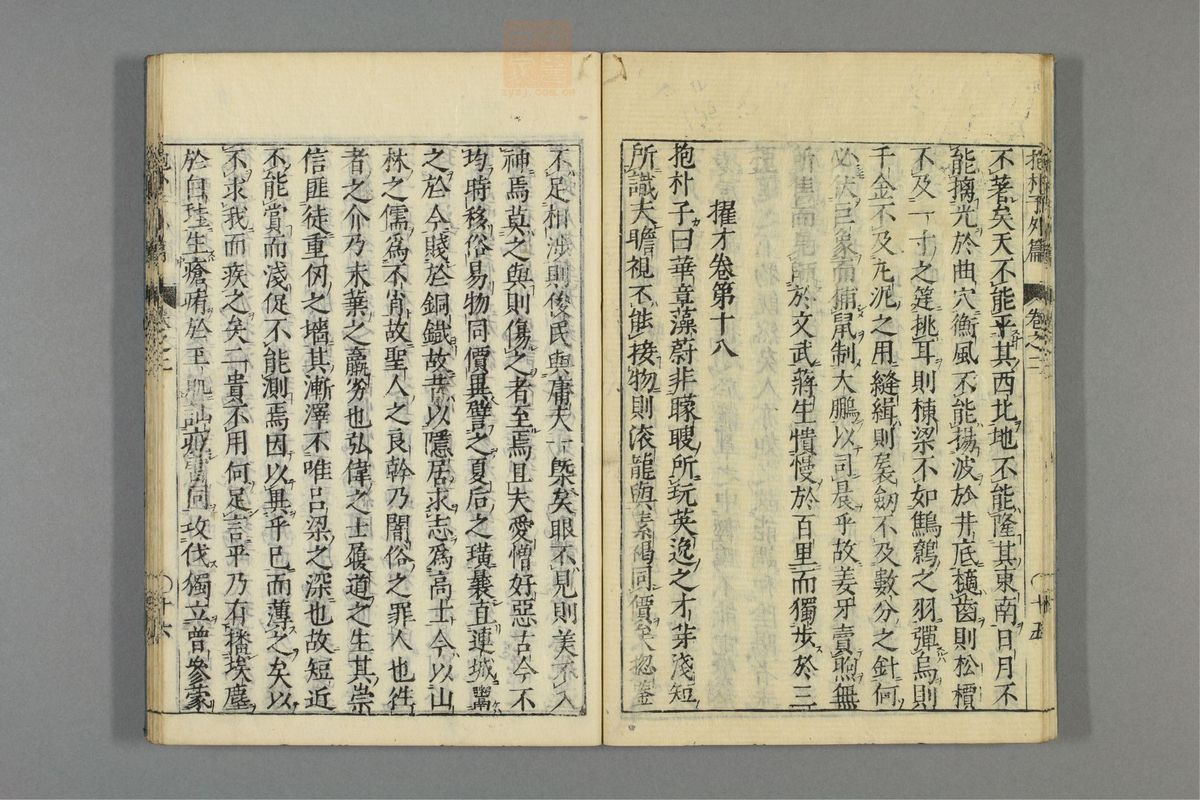 抱朴子外篇 卷之二 廿五
不著矣天不能平其西北地不能隆其東南日月不
能摛光於曲穴衝風不能揚波於井底擿齒則松檟
不及一寸之筳挑耳則棟梁不如鷦鷯之羽彈鳥則
千金不及丸泥之用縫緝則長劒不及數分之針何
必伏巨象而捕鼠制大鵬以司晨乎故姜牙賣煦無
所售而見師於文武蔣生憒慢於百里而獨步於三
擢才卷第十八
抱朴子曰華章藻蔚非矇瞍所玩英逸之才非淺短
所識夫瞻視不能接物則滚龍與素褐同價矣聡鑒
不足相涉則俊民與庸夫一槩矣眼不見則美不入
神焉莫之與則傷之者至焉且夫愛憎好惡古今不
均時移俗易物同價異譬之夏后之璜曩直連城鬻
之於今賤於銅鐵故昔以隱居求志爲高士今以山
林之儒爲不肖故聖人之良幹乃闇俗之罪人也徃
者之介乃末葉之羸劣也弘偉之士履道之生其崇
信匪徒重仞之墻其漸澤不唯呂梁之深也故短近
不能賞而淺促不能測焉因以異乎已而薄之矣以
不求我而疾之矣不貴不用何足言乎乃有播埃塵
於白珪生瘡痏於玉肌訕疵雷同攻伐獨立曾參蒙
卷之二 廿六